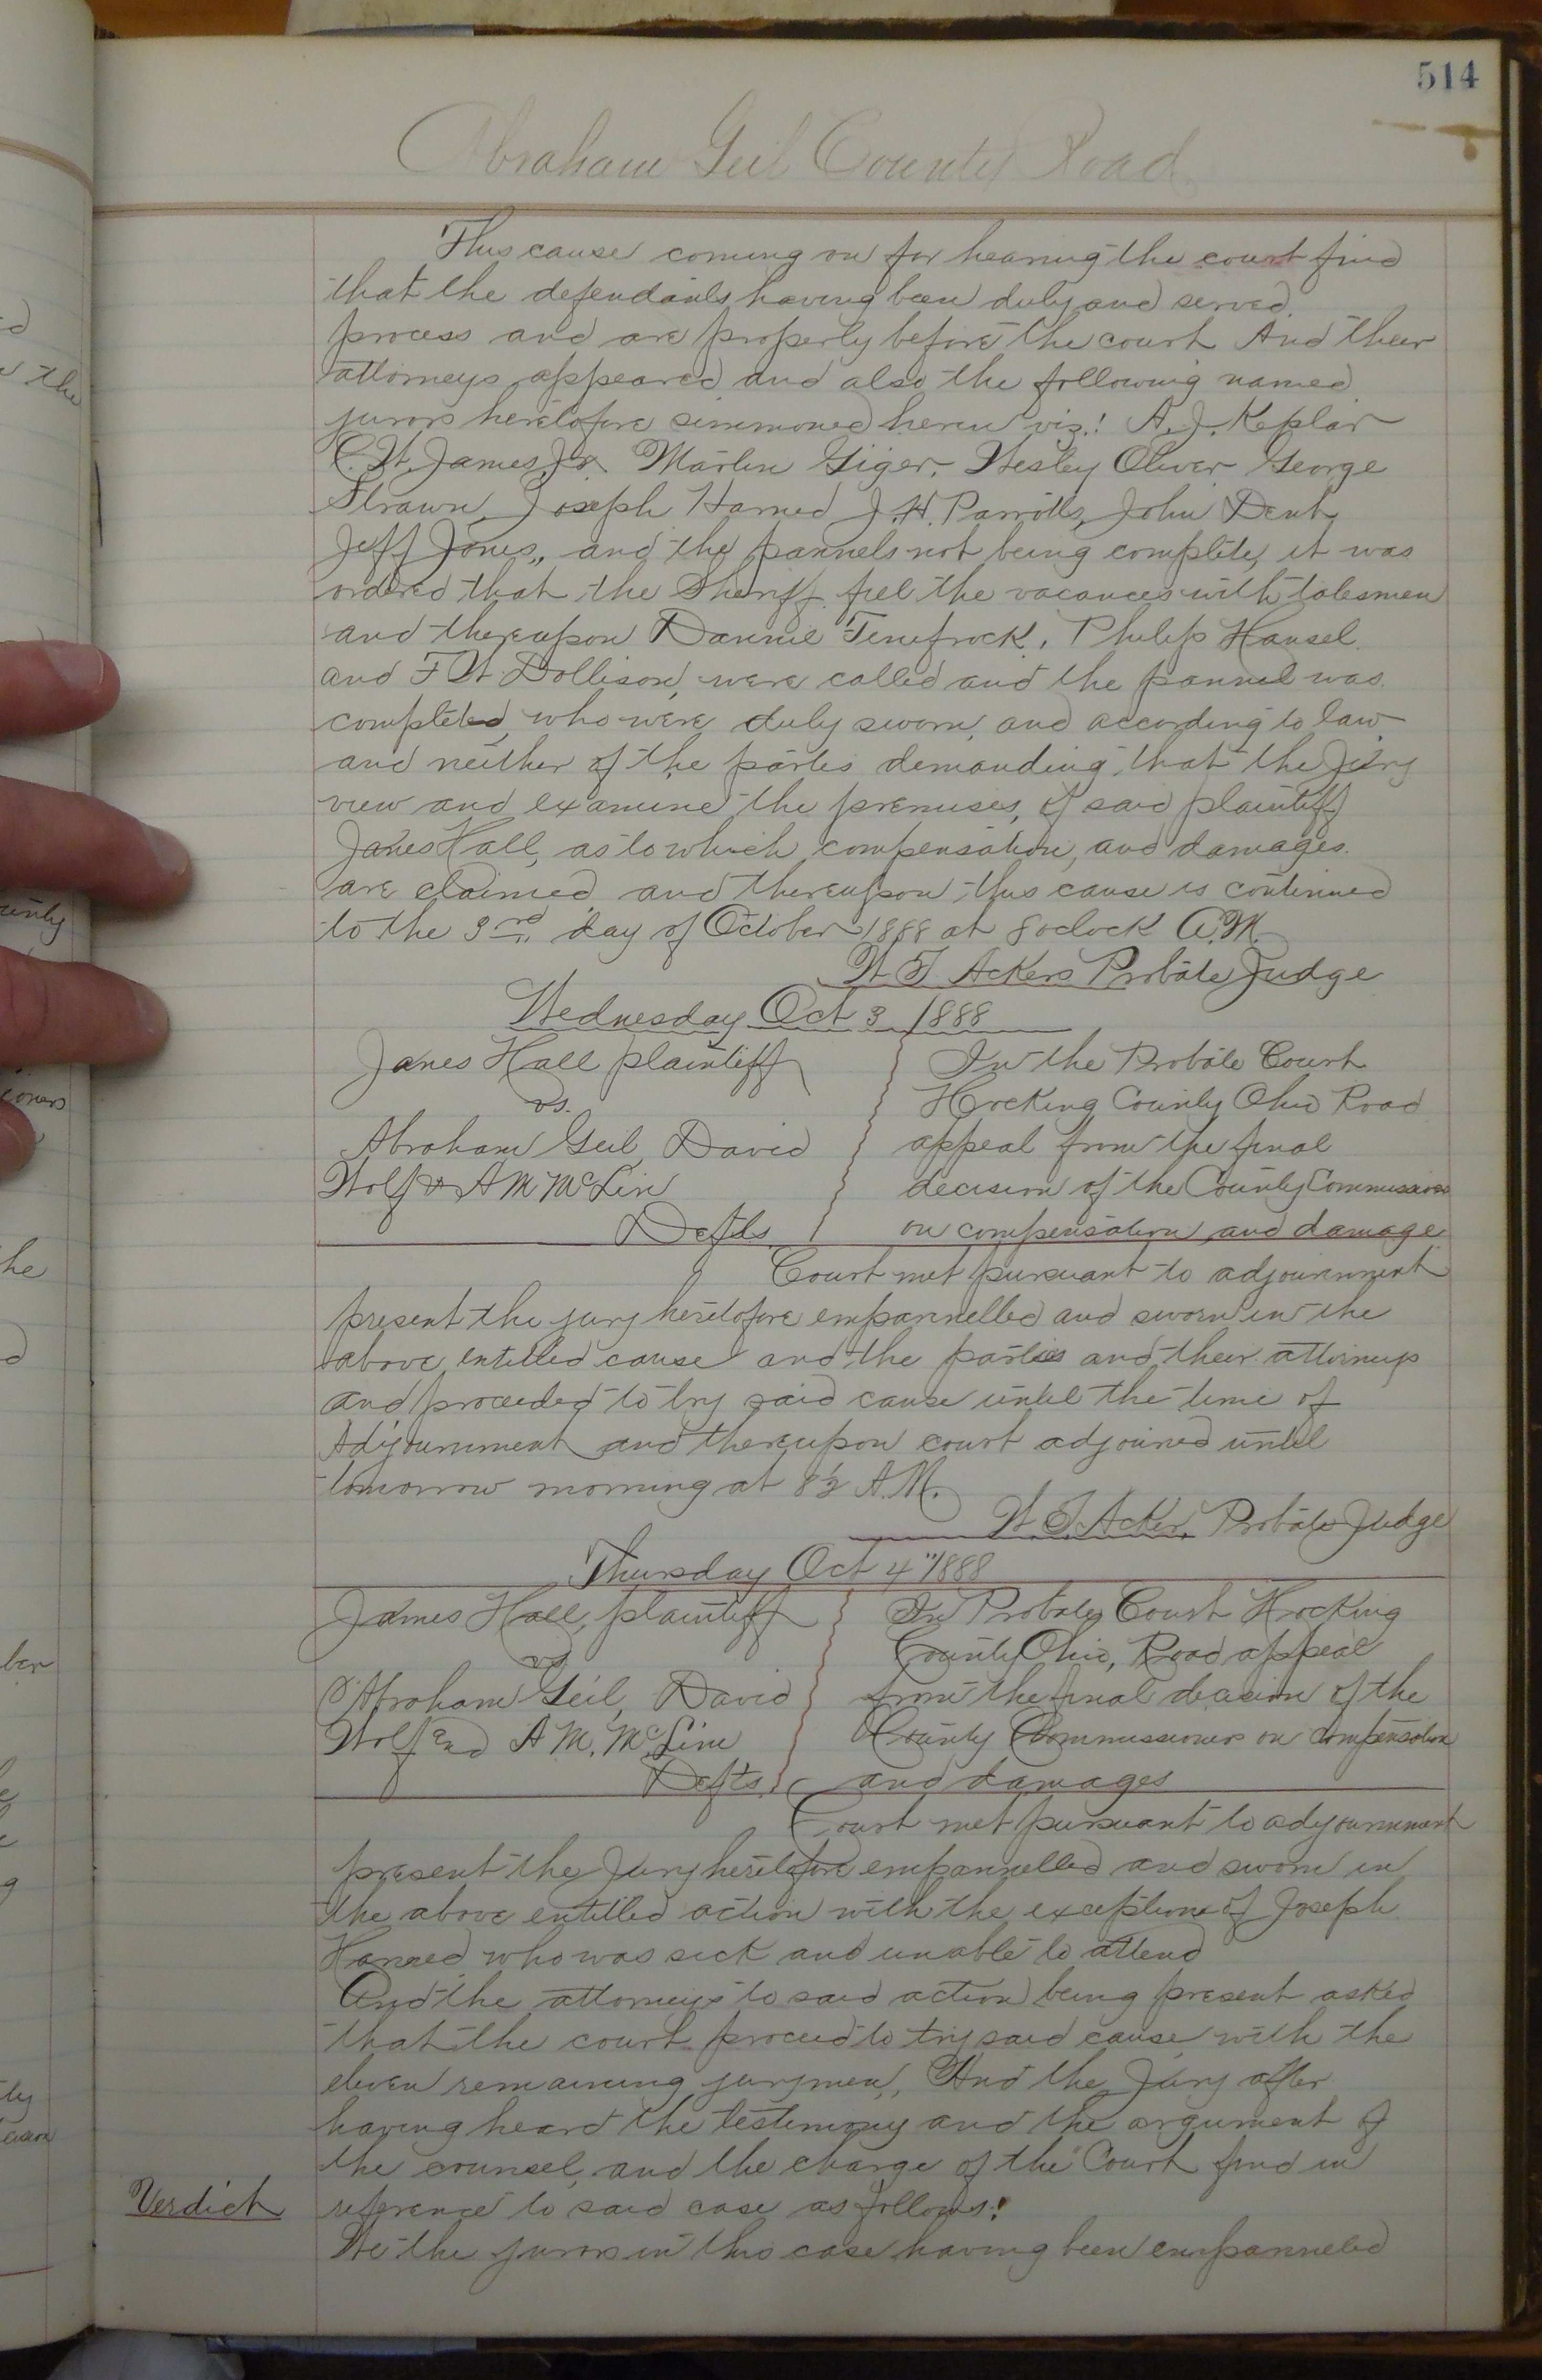 514
Abraham Geil County Road
This cause coming on for hearing the court find
that the defendants having been duly and served
process and are properly before the court And their
attorneys appeared and also the following named
jurors heretofore summoned herein viz.: A. J. Keplar
C. W. James, Jr. Martin Giger, Wesley Oliver George
Strawn, Joseph Harned J. H. Parrotts, John Dent
Jeff Jones,, and the pannels not being complete, it was
ordered that the Sheriff fill the vacances with talesmen
and thereupon Dannie Tenefrock, Philip Hansel
and F W Dollison, were called and the pannel was
completed, who were duly sworn, and according to law
and neither of the parties demanding, that the Jury
view and examine the premises, of said plaintiff
James Hall, as to which compensation, and damages
are claimed, and thereupon, this cause is continued
to the 3rd day of October 1888 at 8 oclock A.M.
W T Ackers Probate Judge
Wednesday Oct 3 1888
James Hall plaintiff
vs.
Abraham Geil, David
Wolf & A M McLin
Defts.
In the Probate Court
Hocking County Ohio Road
appeal from the final
decision of the County Commissioners
on compensation and damage
Court met pursuant to adjournment
present the jury heretofore empannelled and sworn in the
above, entitled cause and the parties and their attorneys
and proceeded to try said cause until the time of
Adjournment and thereupon court adjoined until
tomorrow morning at 8½ A.M.
W. T. Acker, Probate Judge
Thursday Oct 4" 1888
James Hall, plaintiff
vs.
Abraham Geil, David
Wolf and A M. McLine
Defts.
In Probate Court Hocking
County Ohio, Road appeal
from the final decision of the
County Commissioners on compensation
and damages
Court met pursuant to adjournment
present the Jury heretofore empannelled and sworn in
the above entitled action with the exceptione of Joseph
Harned who was sick and unable to attend
And the attorneys to said action being present asked
that the court proceed to try said cause, with the
eleven remaining jurymen, And the Jury after
having heard the testimony and the argument of
the counsel, and the charge of the Court find in
Verdict
reference to said case as follows:
We the jurors in this case having been empanneled